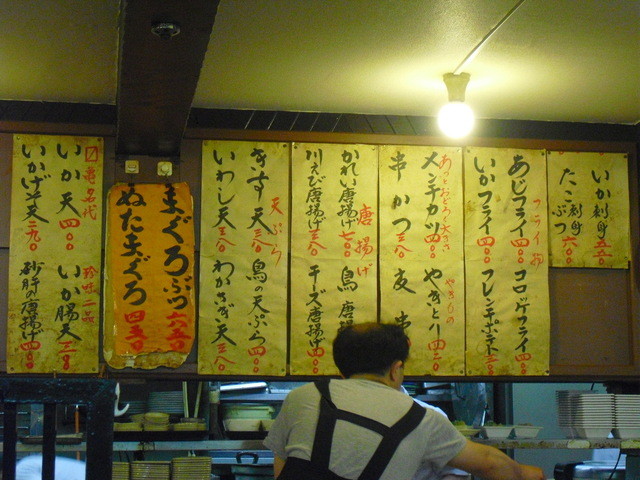 いか刺身 五五〇
たこ刺身ぶつ 六〇〇
フライ
あじフライ 四〇〇 コロッケフライ 四〇〇
いかフライ 四〇〇 フレンチポテト
あっとおどろく大きさ
メンチカツ 四〇〇 やきとり 四二〇
串かつ 三八〇
唐揚げ
かれい唐揚げ 七〇〇 鳥唐
川えび唐揚げ 三八〇 チーズ唐揚げ 四〇〇
天ぷら
きす天 三八〇 鳥の天ぷら 四〇〇
いわし天 三八〇 わかさぎ天 三八〇
まぐろぶつ 六五〇
ぬたまぐろ 四五〇
亀名代 珍味一品
いか天 四〇〇 いか腸天
いかげそ天 二九〇 砂肝の唐揚げ 四〇〇